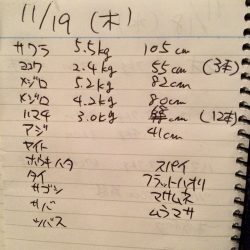 11/19 (木)
サワラ 5.5kg 105cm
ヨコワ 2.4kg 55cm (3本)
メジロ 5.2kg 82cm
メジロ 4.2kg 80cm
ハマチ 3.0kg cm (12本)
アジ 41cm
ヤイト
ホウキハタ スパイ
タイ フラットハオリ
サゴシ マサムネ
サバ ムラマサ
ツバス